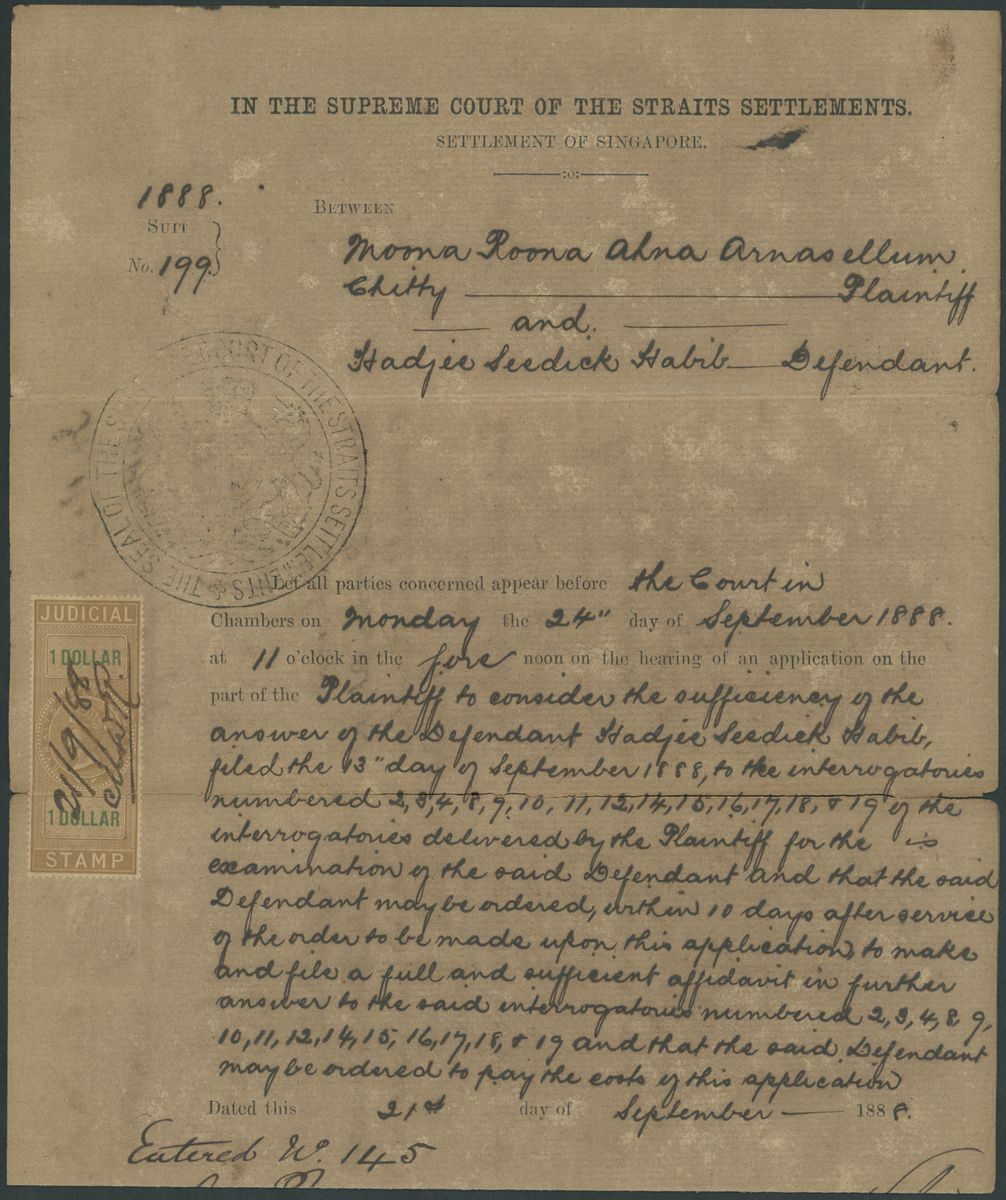 IN THE SUPREME COURT OF THE STRAITS SETTLEMENTS.
SETTLEMENT OF SINGAPORE.
1888.
SUIT
No. 199.
BETWEEN
Moona Roona Ahna Arnasellum
Chitty Plaintiff
and.
Hadjee Seedick Habib Defendant.
THE SEAL OF THE S COURT OF THE STRAITS SETTLEMENTS
Let all parties concerned appear before the Court in
Chambers on Monday the 24" day of September 1888.
at 11 o'clock in the fore noon on the hearing of an application on the
part of the Plaintiff to consider the sufficiency of the
answer of the Defendant Hadjee Seedick Habib,
filed the 13" day of September 1888, to the interrogatories
numbered 2,3,4,8,9,10,11,12,14,15,16,17,18, & 19 of the
interrogatories delivered by the Plaintiff for the
examination of the said Defendant and that the said
Defendant may be ordered, within 10 days after service
of the order to be made upon this application, to make
and file a full and sufficient affidavit in further
answer to the said interrogatories numbered 2,3,4,8,9,
10,11,12,14,15,16,17,18, & 19 and that the said Defendant
may be ordered to pay the costs of this application
Dated this 21st day of September 1888.
Entered No. 145
JUDICIAL
1 DOLLAR
21/9/88
1 DOLLAR
STAMP